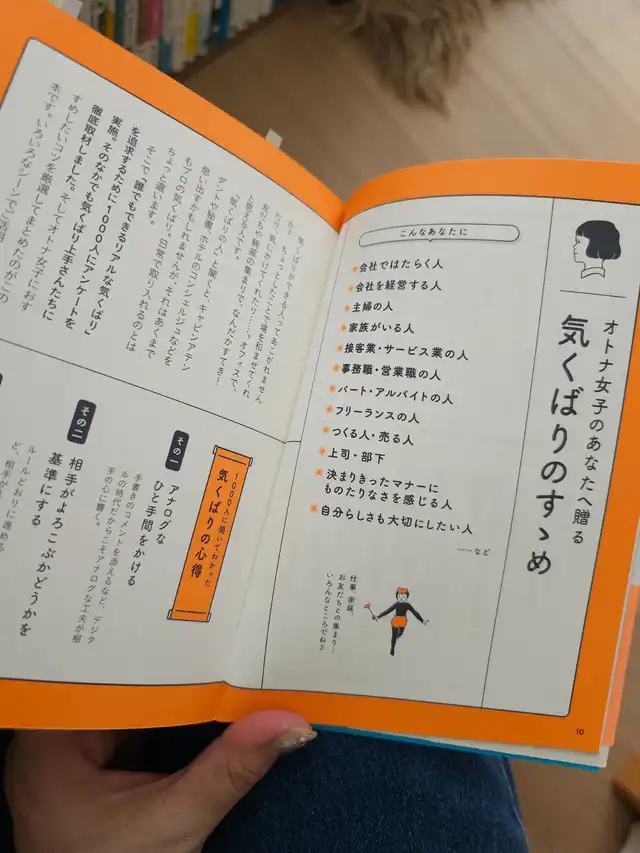 オトナ女子のあなたへ贈る
気くばりのすゝめ
こんなあなたに
会社ではたらく人
会社を経営する人
主婦の人
家族がいる人
接客業・サービス業の人
事務職・営業職の人
パート・アルバイトの人
フリーランスの人
つくる人・売る人
上司・部下
決まりきったマナーに
ものたりなさを感じる人
自分らしさも大切にしたい人
……など
仕事、家庭、
お友だちとの集まり…
いろんなところでね♪
10
気くばりができる人ってあこがれません
か？ ちょっとしたことで場を和ませてくれ
たり、気づかってくれたり……。オフィスで、
友だちや親戚の集まりで、なんだかすてき！
と思える人です。
「気くばりの人」と聞くと、キャビンアテン
ダントや秘書、ホテルのコンシェルジュなどを
思い出すかもしれませんが、それはあくまで
もプロの気くばり。日常で取り入れるのとは
ちょっと違います。
そこで「誰でもできるリアルな気くばり」
を追求するために1000人にアンケートを
実施。そのなかでも気くばり上手さんたちに
徹底取材しました。そしてオトナ女子におす
すめしたいコツを厳選してまとめたのがこの
本です。いろいろなシーンでご活用
1000人に聞いてわかった
気くばりの心得
その一
アナログな
ひと手間をかける
手書きのコメントを添えるなど、デジタ
ルの時代だからこそアナログな工夫が相
手の心に響く。
その二
相手がよろこぶかどうかを
基準にする
ルールどおりに進める
ど、相手が